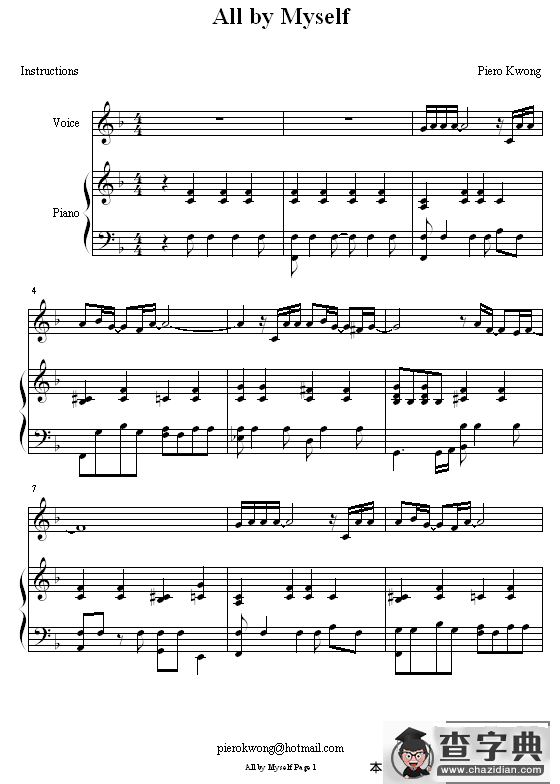 All by Myself
Instructions
Piero Kwong
Voice
Piano
4
7
pierokwong@hotmail.com
All by Myself Page 1
本
查字典
www.chazidian.com